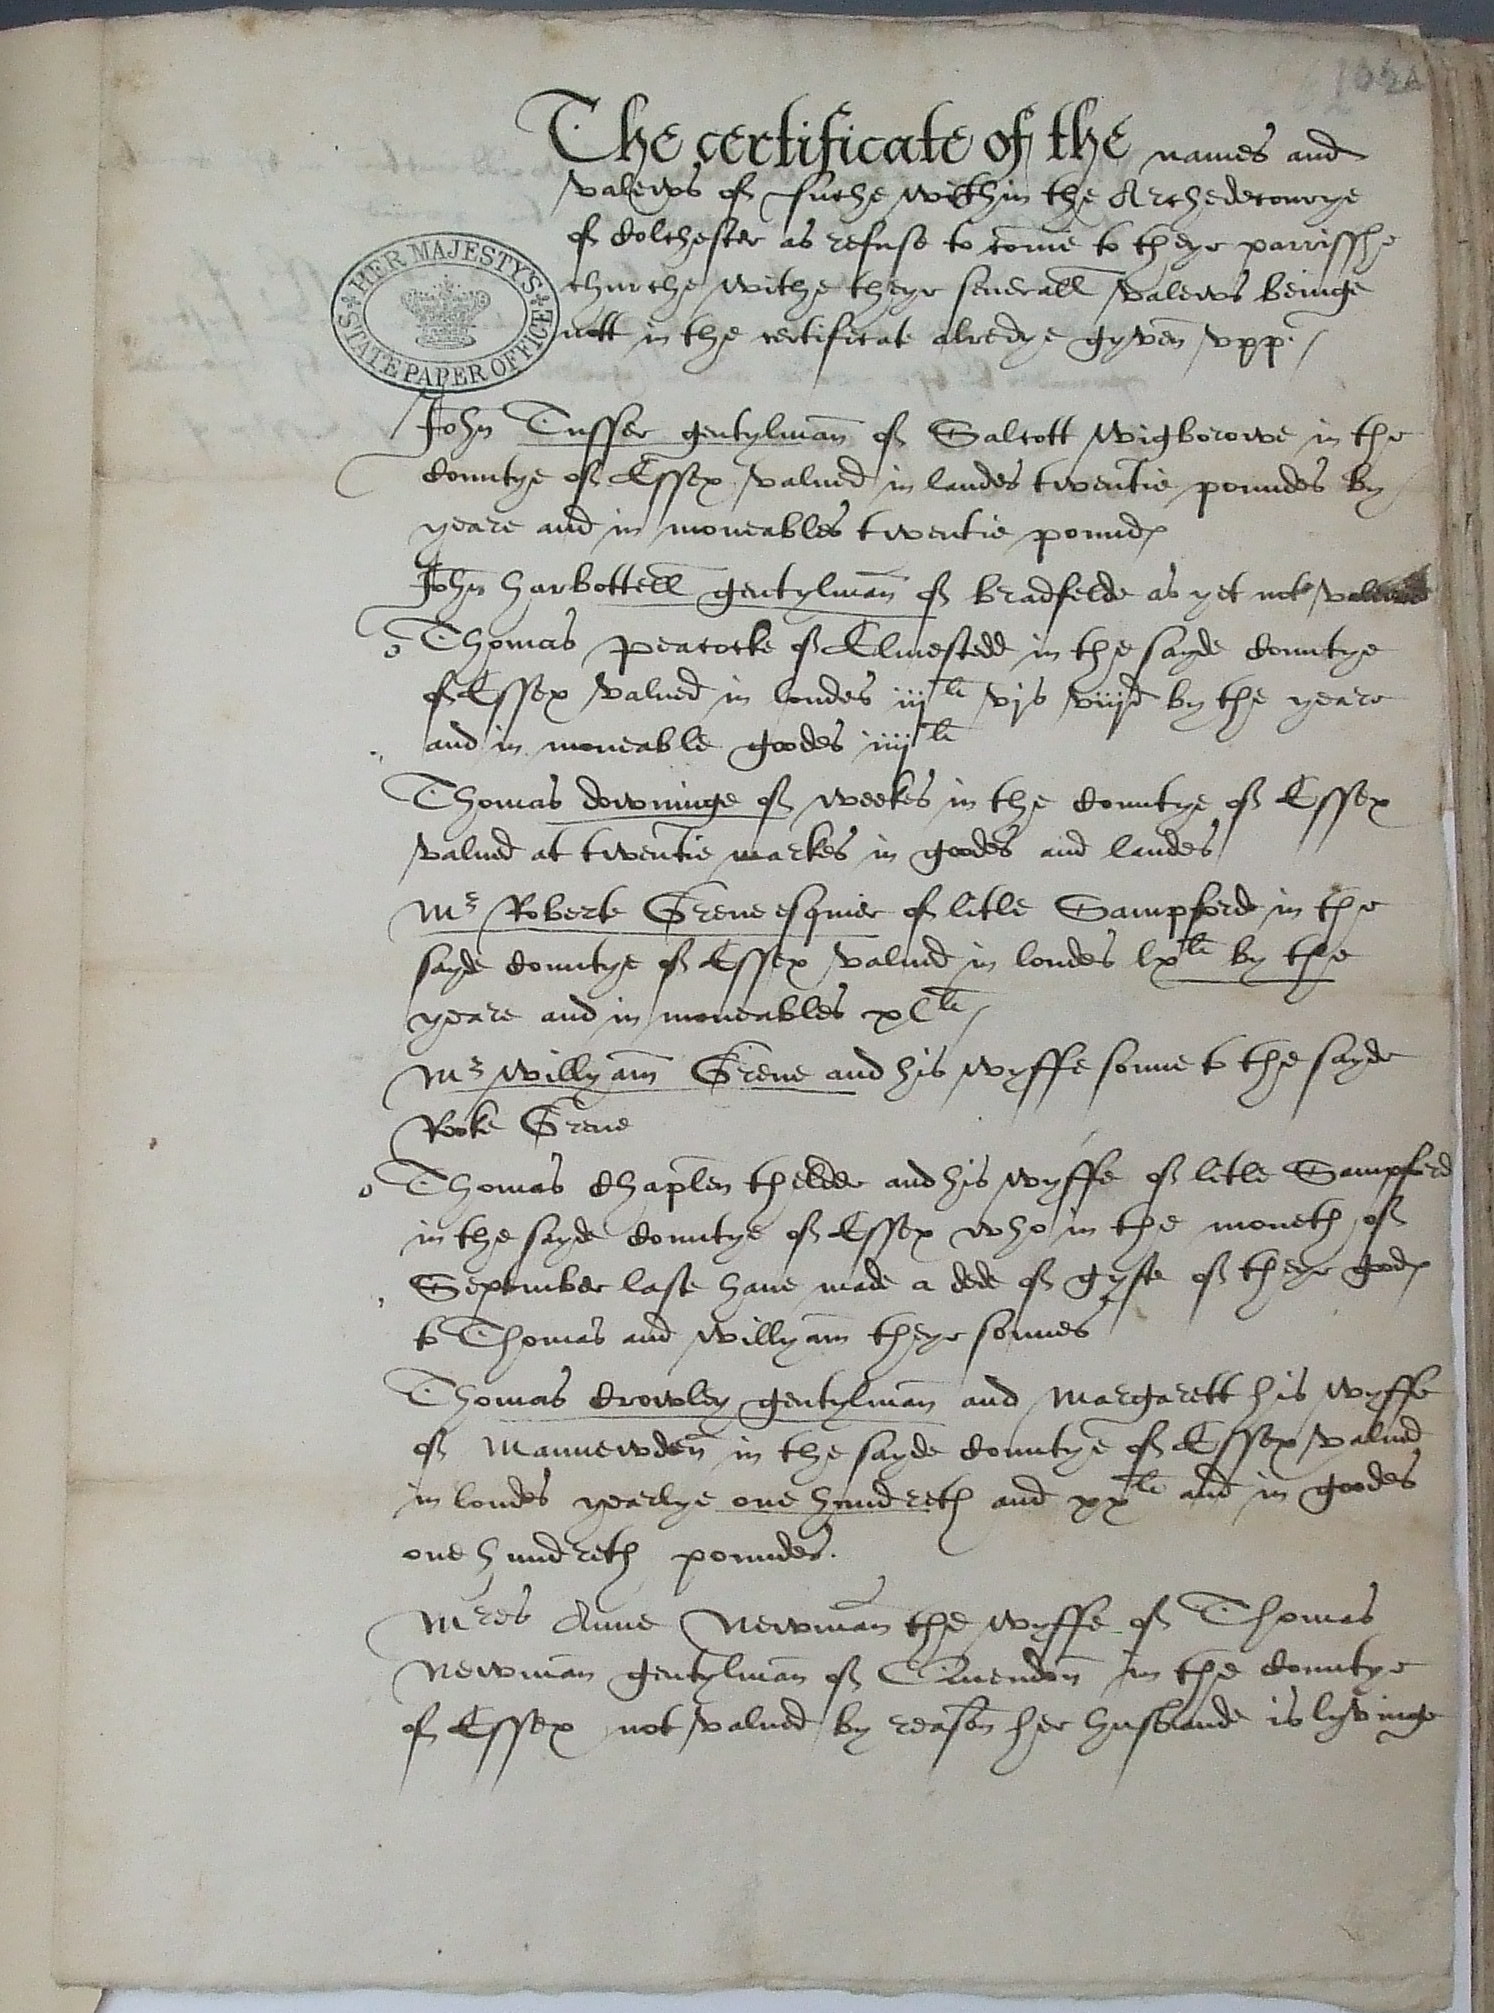 The certificate of the names and
valews of suche within the Archedeconrye
of Colchester as refuse to come to theyr parrisshe
churche withe theyr severall valews beinge
nott in the certificate alredye gyven vpp
HER MAJESTY'S STATE PAPER OFFICE
John Tusser gentylman of Salcott Wigborowe in the
Countye of Essex valued in landes twentie poundes by
yeare and in moveables twentie pound
John Harbottell gentylman of Bradfelde as yet not valewed
Thomas Peacocke of Elmestedd in the sayde Countye
of Essex valued in londes iijli vjs viijd by the yeare
and in moveable goodes iiijli
Thomas Downinge of Weekes in the Countye of Essex
valued at twentie markes in goodes and landes
Mr Roberte Grene esquier of litle Sampforde in the
sayde Countye of Essex valued in londes lxli by the
yeare and in moveables xlli
Mr Willyam Grene and his wyffe sonne to the sayde
Rooke Grene
Thomas Chaplen thelder and his wyffe of litle Sampford
in the sayde Countye of Essex who in the moneth of
September last have made a dede of gyfte of theyr good
to Thomas and Willyam theyr sonnes
Thomas Crowley gentylman and Margarett his wyffe
of Mannewden in the sayde Countye of Essex valued
in londes yearlye one hundreth and xxli and in goodes
one hundreth poundes.
Mres Anne Newman the wyffe of Thomas
Newman gentylman of Quendon in the Countye
of Essex not valued by reason her husbande is lyvinge